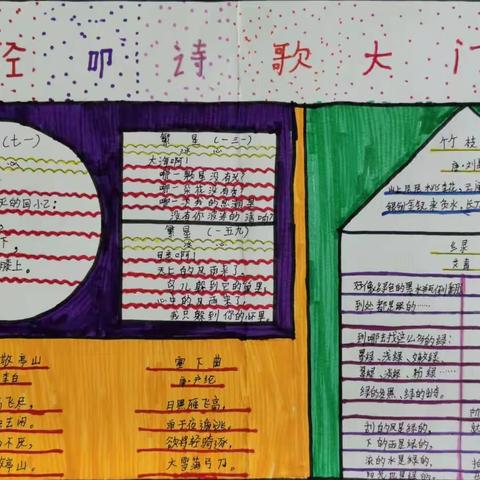 轻叩诗歌大门
(七一)
心
灭的回忆:
下,
膝上。
繁星(一三一)
冰心
大海啊!
哪一颗星没有光?
哪一朵花没有香?
哪一次我的思潮里
没有你波涛的清响?
繁星(一五九)
冰心
母亲啊!
天上的风雨来了,
鸟儿躲到它的巢里;
心中的风雨来了,
我只躲到你的怀里。
敬亭山
李白
高飞尽,
独去闲。
不厌,
亭山。
塞下曲
唐·卢纶
月黑雁飞高,
单于夜遁逃。
欲将轻骑逐,
大雪满弓刀。
竹枝
唐·刘禹
山上层层桃李花,云间
银钏金钗来负水,长刀
艾青
好像绿色的墨水瓶倒翻
到处都是绿的……
到哪去找这么多的绿:
墨绿、浅绿、嫩绿、
翠绿、淡绿、粉绿……
绿的发黑、绿的出奇。
刮的风是绿的,
下的雨是绿的,
流的水是绿的,
阳光也是绿的。